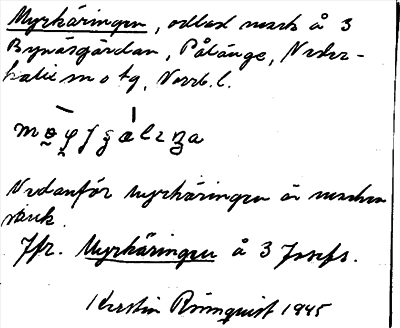 Myrhäringen, odlad mark å 3
Bynäsgården, Pålänge, Neder-
kalix sn o tg, Norrb. l.
Nedanför Myrhäringen är marken
Jfr. Myrhäringen å 3 Josefs.
Kerstin Rönnquist 1945